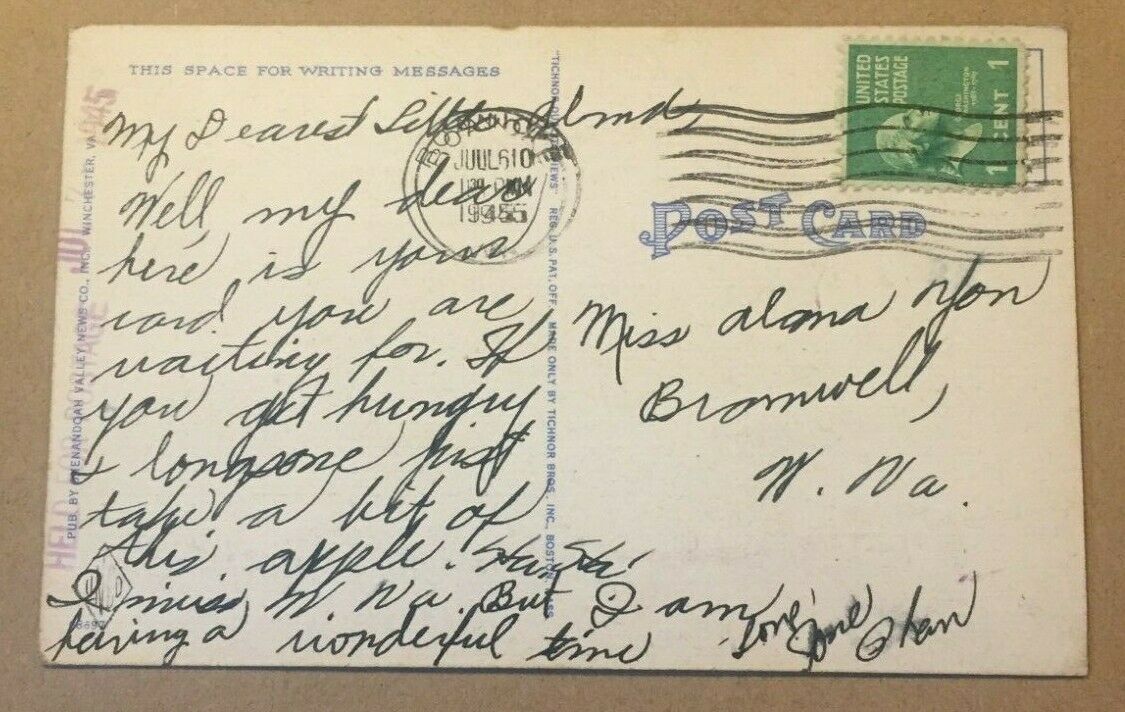 THIS SPACE FOR WRITING MESSAGES
My Dearest Little
Well my dear
here is yours
card you are
waiting for. If
you get hungry
& lonesome just
take a bit of
this apple. Ha Ha
I miss W. Va. But I am
having a wonderful time
Love,
PUB. BY SHENANDOAH VALLEY NEWS CO., INC., WINCHESTER, VA.
"TICHNOR QUALITY VIEWS" REG. U.S. PAT. OFF. MADE ONLY BY TICHNOR BROS. INC., BOSTON, MASS.
HELD FOR POSTAGE
1945
UNITED
STATES
POSTAGE
GEORGE
WASHINGTON
1 CENT 1
POST CARD
Miss Alama Yon
Bramwell,
W. Va.